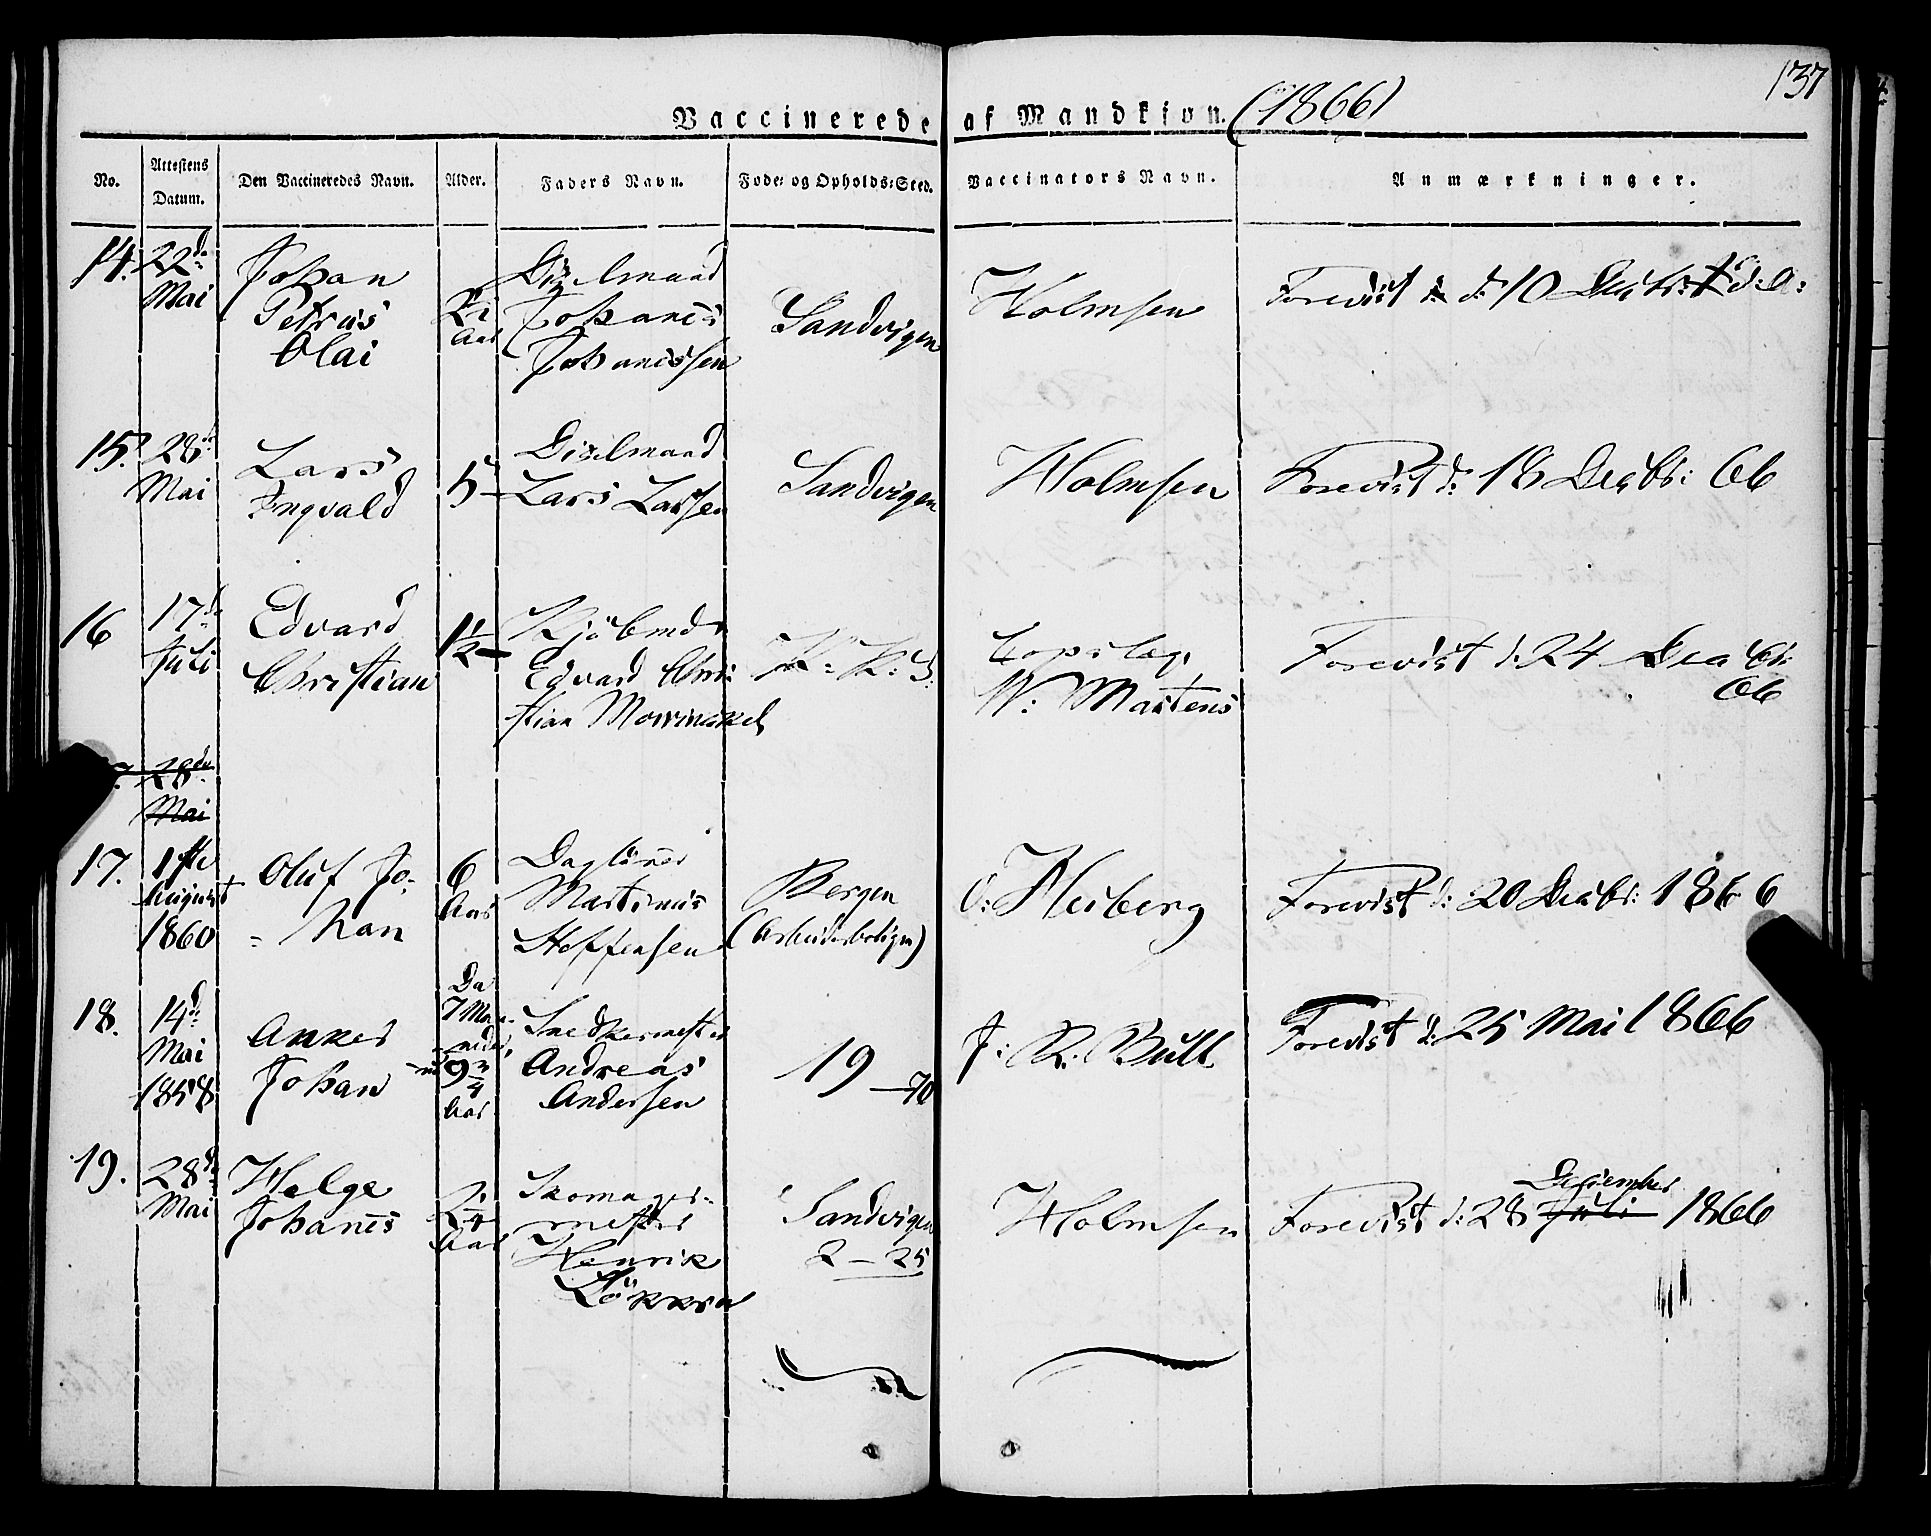 137
Vaccinerede af Mandkiøn. (1866)
No.
Attestens Datum.
Den Vaccineredes Navn.
Alder.
Faders Navn.
Føde- og Opholds-Sted.
Vaccinators Navn.
Anmærkninger.
14. 22de Mai
Johan
Petrus
Olai
Aar
Johanes
Johanessen
Sandvigen
Holmsen
Forevist d: 10 Decbr:
15. 28de Mai
Lars
Ingvald
5
Lars Larsen
Sandvigen
Holmsen
Forevist d: 18 Decbr: 66
16 17de Juli
Edvard
Christian
1 1/2
Kjöbmd
Edvard Chri-
stian Mowinckel
K: K: S:
W: Martens
Forevist d: 24 Decbr:
66
28de
Mai
17. 1ste August 1860
Oluf Jo-
= han
6 Aar
Daglöner
Martinus
Steffensen
Bergen
(Arbeiderboliger)
O: Heiberg
Forevist d: 20 Decbr: 1866
18. 14de Mai 1858
Anker
Johan
Da
7 Maa-
neder,
nu 9 3/4
Aar
Snedkermester
Andreas
Andersen
19 - 70
J: R. Bull
Forevist d: 25 Mai 1866
19. 28de Mai
Helge
Johanes
2 1/4 Aar
Skomager-
mester
Henrik
Lökken
Sandvigen
2 - 25
Holmsen
December
Forevist d: 28 Juli 1866